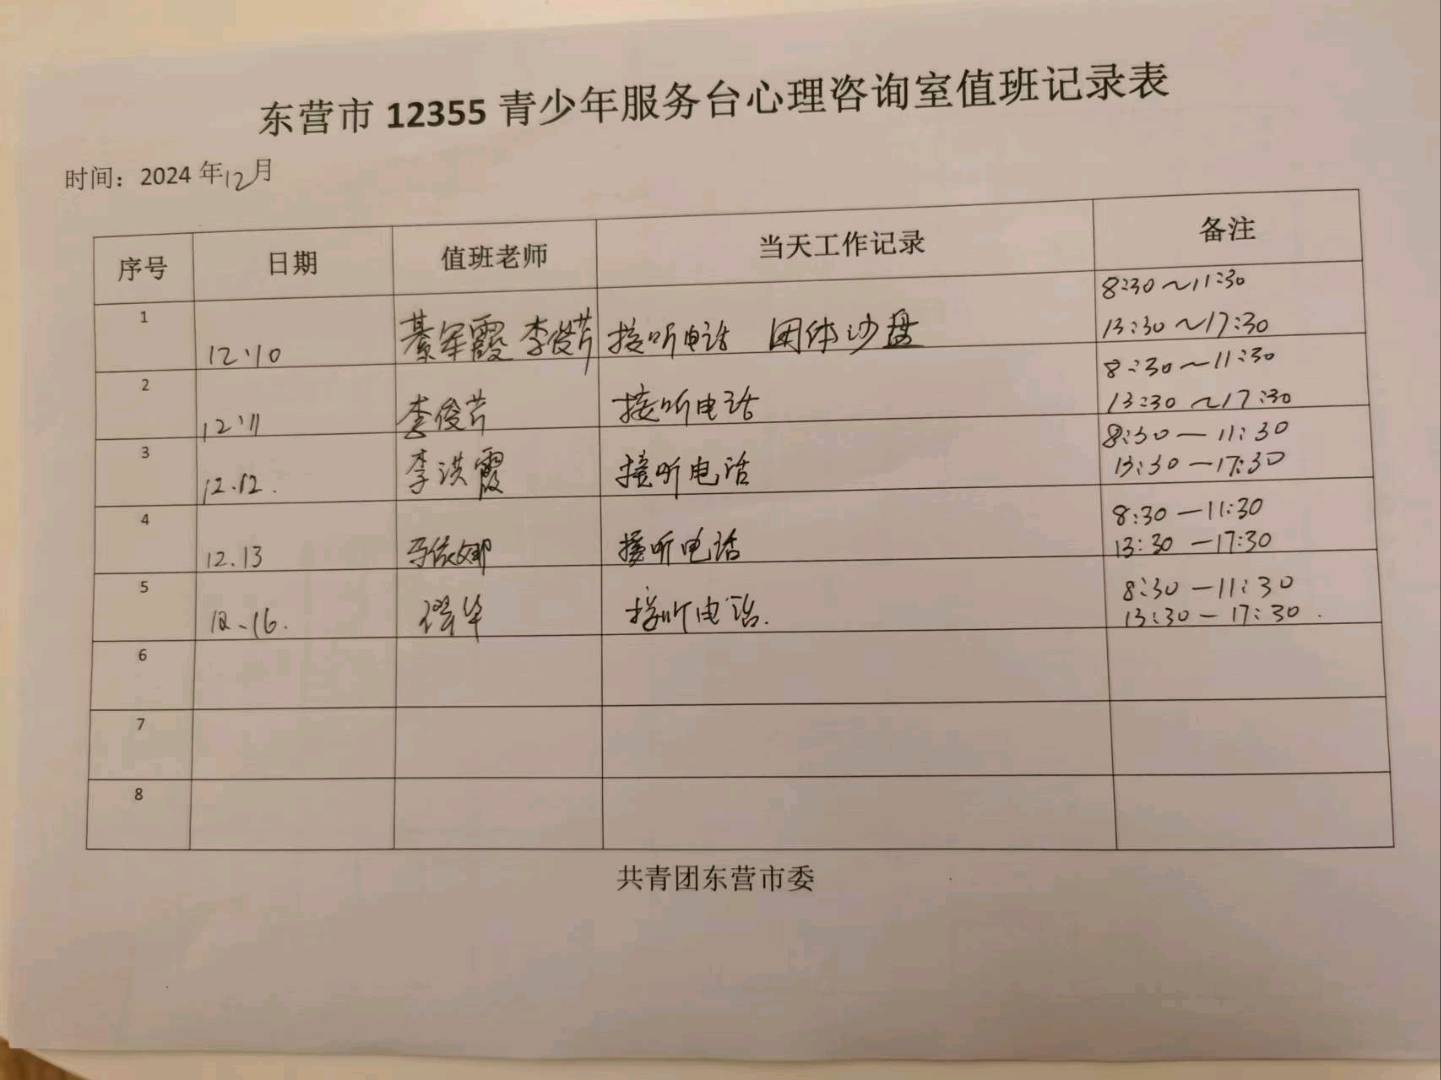 东营市 12355 青少年服务台心理咨询室值班记录表
时间：2024 年12月
序号 日期 值班老师 当天工作记录 备注
1 12.10 綦军霞 李俊芹 接听电话 团体沙盘 8:30～11:30
13:30～17:30
2 12.11 李俊芹 接听电话 8:30～11:30
13:30～17:30
3 12.12. 李洪霞 接听电话 8:30—11:30
13:30—17:30
4 12.13 接听电话 8:30—11:30
13:30—17:30
5 12.16. 接听电话. 8:30—11:30
13:30—17:30.
6
7
8
共青团东营市委